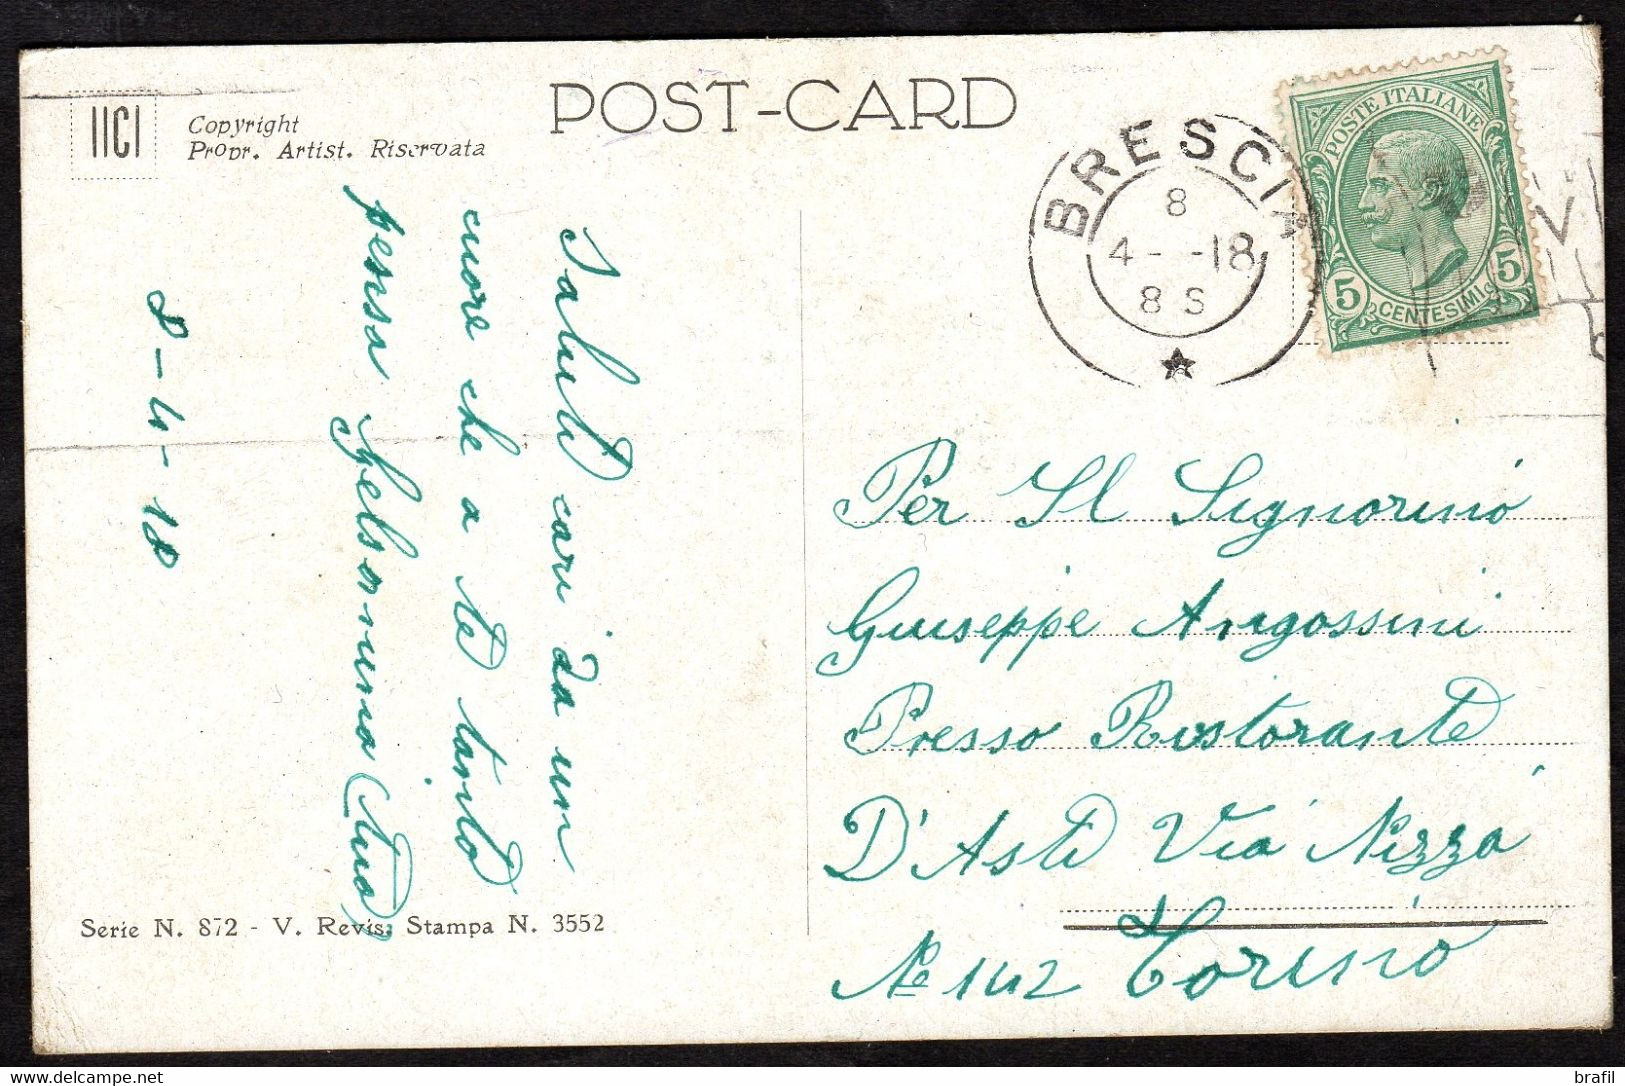 POST-CARD
IICI
Copyright
Propr. Artist. Riservata
BRESCIA
8
4 - -18
8 S
POSTE ITALIANE
5 CENTESIMI 5
Saluti cari da un
cuore che a te tanto
pensa Gelsomina (tua)
8-4-18
Per Il Signorino
Giuseppe Arigossini
Presso Ristorante
D'Asti Via Nizza
No 142 Torino
Serie N. 872 - V. Revis. Stampa N. 3552
delcampe.net
brafil